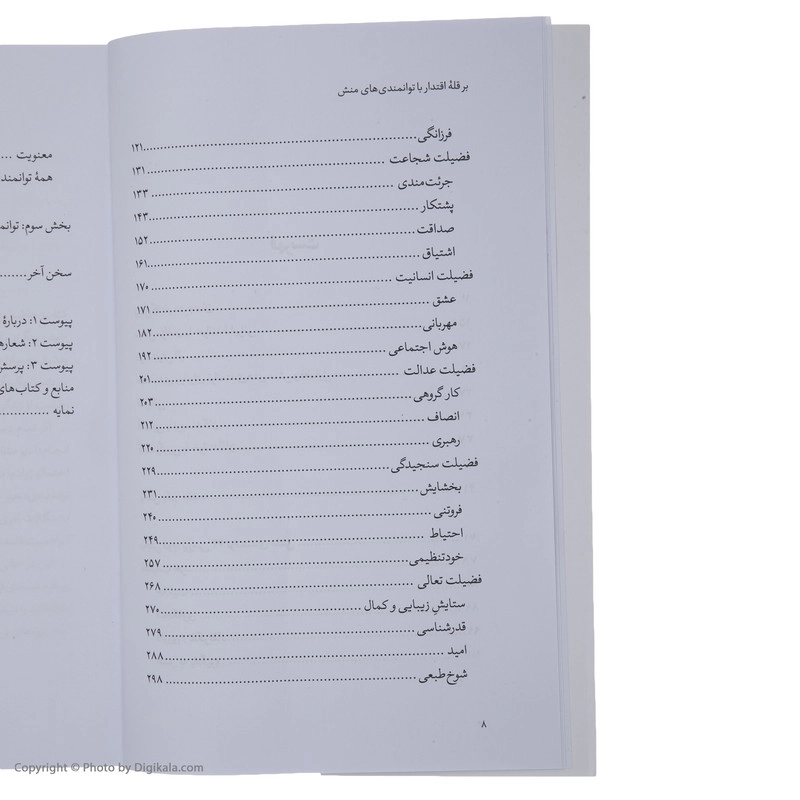 بر قلهٔ اقتدار با توانمندی‌های منش
فرزانگی........................................................۱۲۱
فضیلت شجاعت ........................................................۱۳۱
جرئت‌مندی ........................................................۱۳۳
پشتکار........................................................۱۴۳
صداقت........................................................۱۵۲
اشتیاق........................................................۱۶۱
فضیلت انسانیت ........................................................۱۷۰
عشق ........................................................۱۷۱
مهربانی........................................................۱۸۲
هوش اجتماعی ........................................................۱۹۲
فضیلت عدالت ........................................................۲۰۱
کار گروهی........................................................۲۰۳
انصاف ........................................................۲۱۲
رهبری ........................................................۲۲۰
فضیلت سنجیدگی........................................................۲۲۹
بخشایش........................................................۲۳۱
فروتنی ........................................................۲۴۰
احتیاط ........................................................۲۴۹
خودتنظیمی........................................................۲۵۷
فضیلت تعالی ........................................................۲۶۸
ستایشِ زیبایی و کمال ........................................................۲۷۰
قدرشناسی........................................................۲۷۹
امید ........................................................۲۸۸
شوخ‌طبعی........................................................۲۹۸
۸
معنویت ...
همهٔ
بخش سوم:
سخن آخر........
پیوست ۱: دربارهٔ
پیوست ۲:
پیوست ۳:
منابع و کتاب‌های
نمایه .............
Copyright © Photo by Digikala.com